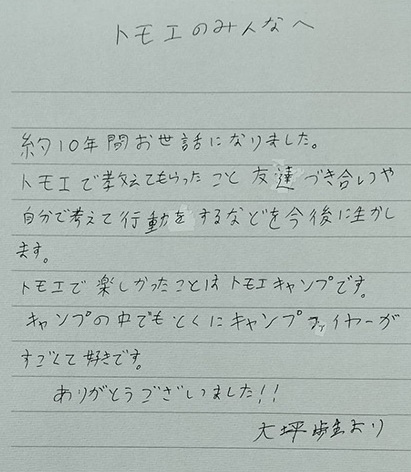 トモエのみんなへ
約10年間お世話になりました。
トモエで教えてもらったこと友達づき合いや
自分で考えて行動をするなどを今後に生かし
ます。
トモエで楽しかったことはトモエキャンプです。
キャンプの中でもとくにキャンプファイヤーが
すごくて好きです。
ありがとうございました!!
大坪 より